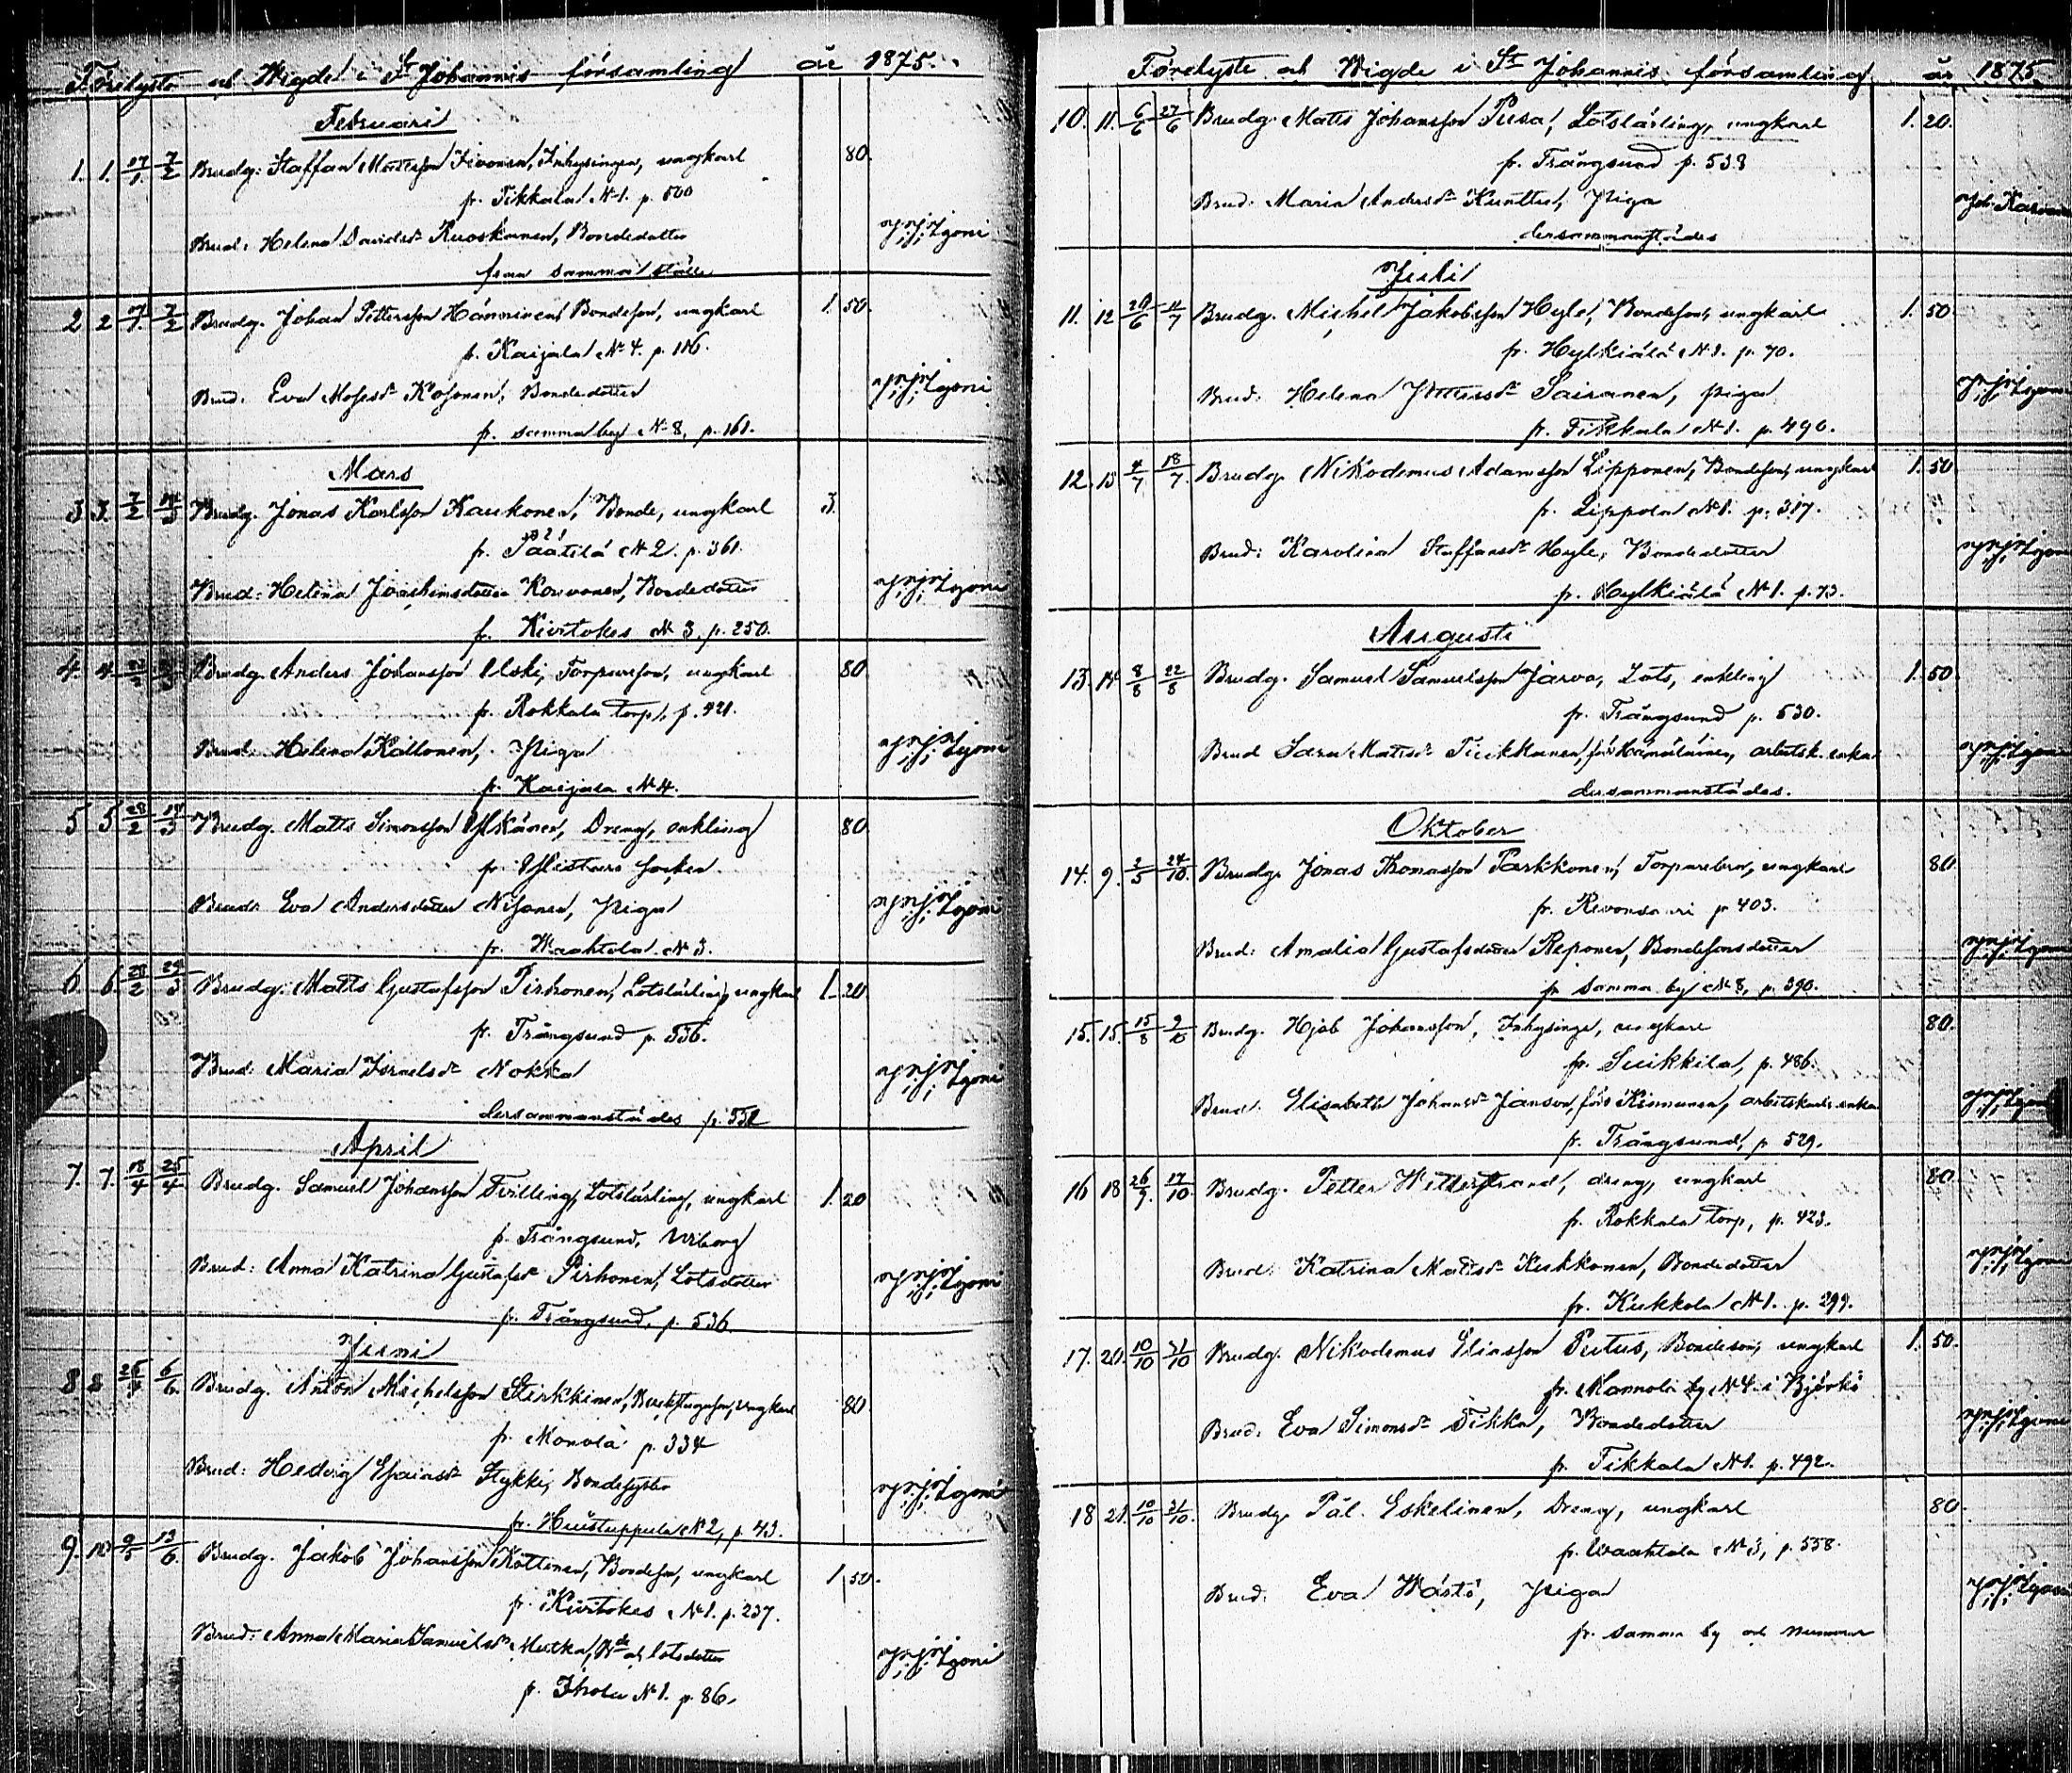 Förelyste och Wigde i St Johannis församling år 1875.
Februari
1. 1. 17/1 7/2 Brudg: Staffan Mattsson Iivonen, Inhysingen, ungkarl 80.
fr. Tikkala N 1. p. 500
Brud: Helena Davidsdr Ruoskanen, Bondedotter
från samma ställe
2 2 17/1 7/2 Brudg. Johan Pettersson Hänninen, Bondeson, ungkarl 1. 50.
fr. Kaijala N 4. p. 116.
Brud: Eva Mosesdr Kosonen, Bondedotter
fr. samma by N 8, p. 161.
Mars
3 3. 7/2 14/3 Brudg. Jonas Karlsson Kaukonen, Bonde, ungkarl 3.
fr. Päätilä N 2. p. 361.
Brud: Helena Joachimsdotter Kouvonen, Bondedotter
fr. Kiurtokes N 3. p. 250.
4. 4 Brudg. Anders Johansson Ilski, Torpareson, ungkarl 80
fr. Rokkala torp, p. 421.
Brud: Helena Källonen, Piga
fr. Kaijala N 4.
5 5 28/2 14/3 Brudg. Matts Simonsson Yskänen, Dreng, enkling 80.
fr. socken.
Brud: Eva Andersdotter Nisonen, Piga
fr. Waahtola N 3.
6. 6. 28/2 29/3 Brudg. Matts Gustafsson Pirhonen, Lotslärling, ungkarl 1. 20.
fr. Trångsund p. 536.
Brud: Maria Israelsdr Nokka
dersammanstädes p. 532
April
7. 7. 18/4 25/4 Brudg. Samuel Johansson Tvilling, Lotslärling, ungkarl 1. 20
fr. Trångsund, Wiborg
Brud: Anna Katrina Gustafsdr Pirhonen, Lotsdotter
fr. Trångsund, p. 536
Juni
8 8 25/4 6/6 Brudg. Anton Michelsson Stirkkinen, ungkarl 80.
fr. Monola p. 334
Brud: Hedvig Esaiasdr Stykki, Bondesyster
fr. Huustuppula N 2, p. 43.
9. 10 9/5 13/6 Brudg. Jakob Johansson Kottonen, Bondeson, ungkarl 1. 50.
fr. Kiurtokes N 1. p. 237.
Brud: Anna Maria Samuelsdr Mutka, och lotsdotter
fr. Ihola N 1. p. 86.
Förelyste och Wigde i St Johannis församling år 1875.
10. 11. 6/6 27/6 Brudg. Matts Johansson Pusa, Lotslärling, ungkarl 1. 20.
fr. Trångsund p. 538
Brud: Maria Andersdr Kunttu, Piga
dersammanstädes
Juli
11. 12 20/6 11/7 Brudg. Michel Jakobsson Hyle, Bondeson, ungkarl 1. 50.
fr. Hylkiälä N 1. p. 70.
Brud: Helena Pettersdr Sairanen, piga
fr. Tikkala N 1. p. 490.
12. 13 4/7 18/7 Brudg. Nikodemus Adamsson Lipponen, Bondeson, ungkarl 1. 50
fr. Lippola N 1. p. 317.
Brud: Karolina Staffansdr Hyle, Bondedotter
fr. Hylkiälä N 1. p. 73.
Augusti
13. 14 8/8 22/8 Brudg. Samuel Samuelsson Jarva, Lots, enkling 1. 50.
fr. Trångsund p. 530.
Brud Sara Mattsdr Tiukkanen, förr Hämäläinen, arbetsk. enka
dersammanstädes.
Oktober
14. 9. 2/5 24/10. Brudg. Jonas Thomasson Parkkonen, Torparebror, ungkarl 80.
fr. Revonsaari p 403.
Brud: Amalia Gustafsdotter Reponen, Bondesonsdotter
fr samma by N 8, p. 390.
15. 15. 15/8 9/10 Brudg. Hjob Johansson, Inhysinge, ungkarl 80.
fr. Suikkila, p. 486.
Brud: Elisabeth Johansdr Janson, förr Kinnunen, arbetskarls enka
fr. Trångsund, p 529.
16 18 26/9. 17/10. Brudg. Petter Wetterstrand, dreng, ungkarl 80.
fr. Rokkala torp, p. 423.
Brud: Katrina Mattsdr Kukkonen, Bondedotter
fr. Kukkola N 1. p. 299.
17. 20. 10/10 31/10 Brudg. Nikodemus Eliasson Putus, Bondeson, ungkarl 1. 50.
fr. Mannola by N 4. i Björkö
Brud: Eva Simonsdr Tikka, Bondedotter
fr. Tikkala N 1. p. 492.
18 21. 10/10 31/10. Brudg. Pål Eskelinen, Dreng, ungkarl 80.
fr. Waahtola N 3, p. 558.
Brud: Eva Wästö, Piga
fr. samma by och nummer